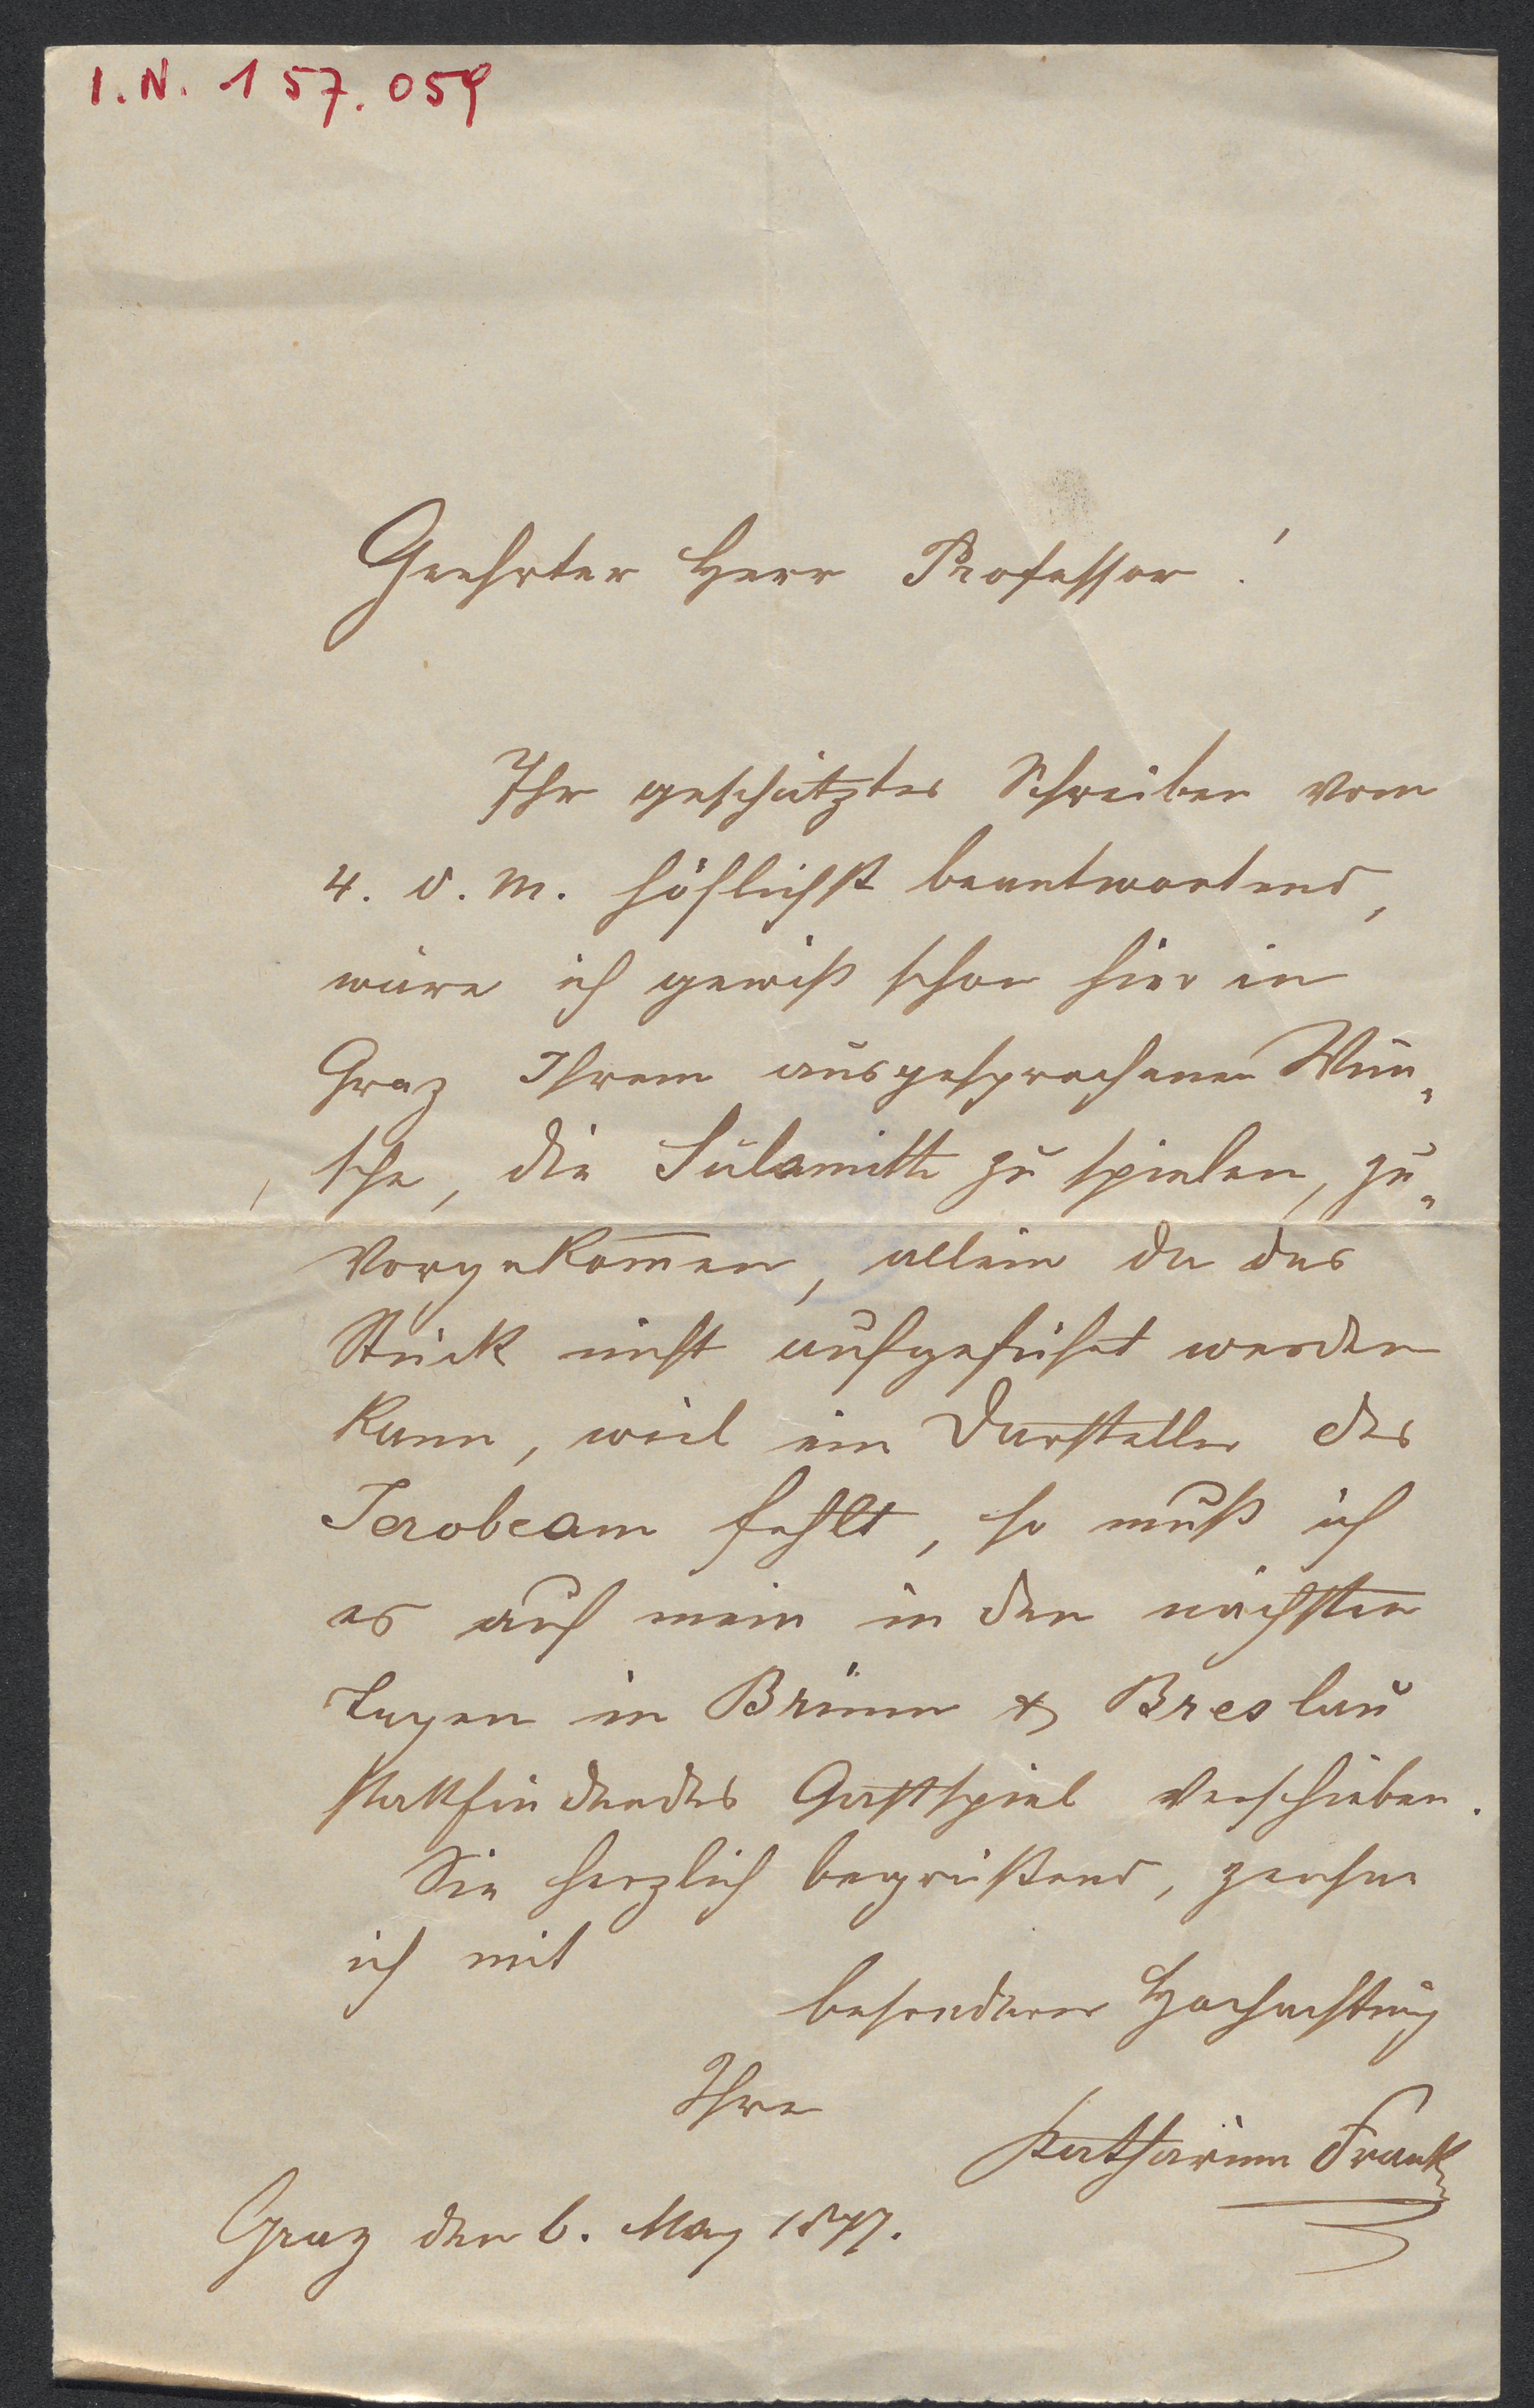 I.N. 157.059
Geehrter Herr Professor!
Ihr geschätztes Schreiben vom
4. d. M. höflichst beantwortend,
wäre ich gewiß schon hier in
Graz Ihrem ausgesprochenen Wun„
sche, die Sulamitte zu spielen, zu„
vorgekom̅en, allein da das
Stück nicht aufgeführt werden
kann, weil ein Darsteller des
Jerobeam fehlt, so muß ich
es auf mein in den nächsten
Tagen in Brünn & Breslau
stattfindendes Gastspiel verschieben.
Sie herzlich begrüßend, zeichne
ich mit
besonderer Hochachtung
Ihre
Katharina Frank
Graz den 6. May 1877.